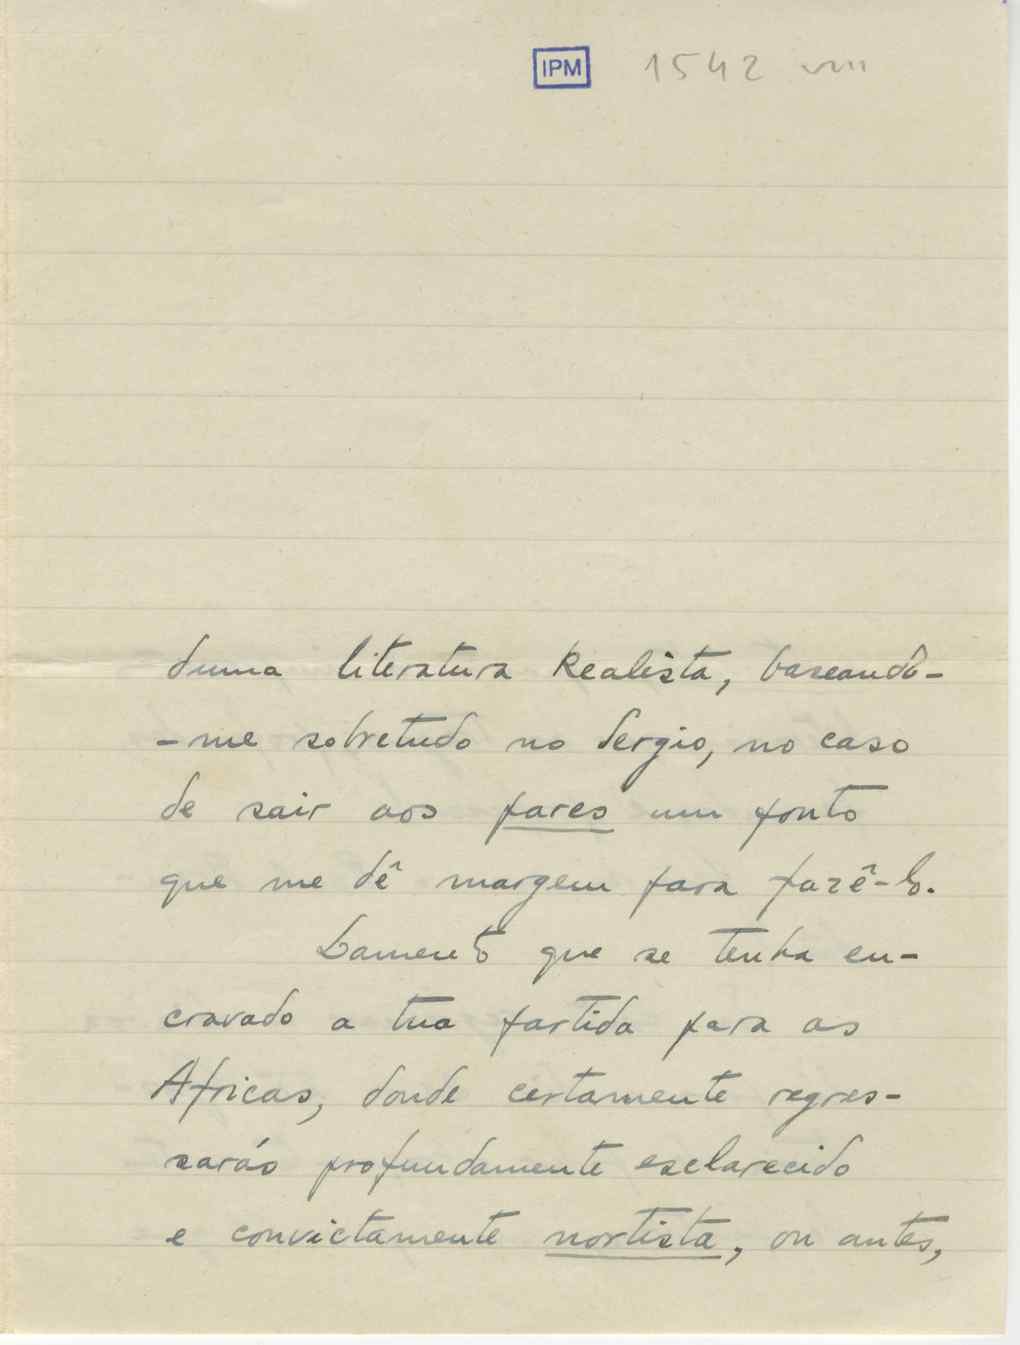 IPM 1542 VIII
duma literatura Realista, baseando-
-me sobretudo no Sergio, no caso
de sair aos pares um ponto
que me dê margem para fazê-lo.
Lamento que se tenha en-
cravado a tua partida para as
Africas, donde certamente regres-
sarás profundamente esclarecido
e convictamente nortista, ou antes,